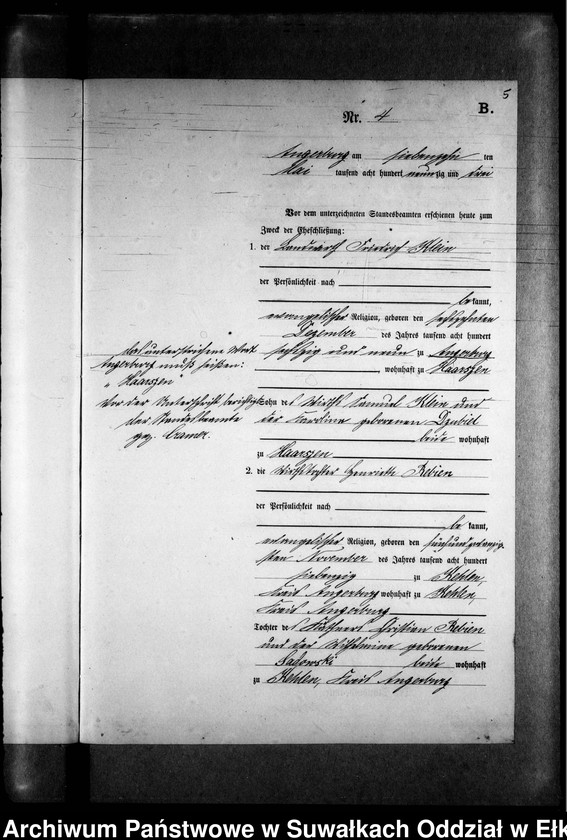 5
B.
Nr. 4
Angerburg am siebenzehn ten
Mai tausend acht hundert neunzig und drei
Vor dem unterzeichneten Standesbeamten erschienen heute zum
Zweck der Eheschließung:
1. der Landwirth Friedrich Klein
der Persönlichkeit nach
bekannt,
evangelischer Religion, geboren den sechszehnten
Dezember des Jahres tausend acht hundert
sechzig und neun zu Angerburg
, wohnhaft zu Haarszen
Sohn des Wirths Samuel Klein und
der Karoline geborenen Dzubiel
beide wohnhaft
zu Haarszen
das unterstrichene Wort
Angerburg muß heißen:
„Haarszen
Vor der Unterschrift berichtigt
der Standesbeamte
gez. Cramer.
2. die Wirthstochter Henriette Rebien
der Persönlichkeit nach
be kannt,
evangelischer Religion, geboren den fünfundzwanzig-
sten November des Jahres tausend acht hundert
siebenzig zu Kehlen,
Kreis Angerburg wohnhaft zu Kehlen,
Kreis Angerburg
Tochter des Käthners Christian Rebien
und der Wilhelmine geborenen
Sadowski beide wohnhaft
zu Kehlen, Kreis Angerburg
Archiwum Państwowe w Suwałkach Oddział w Ełk